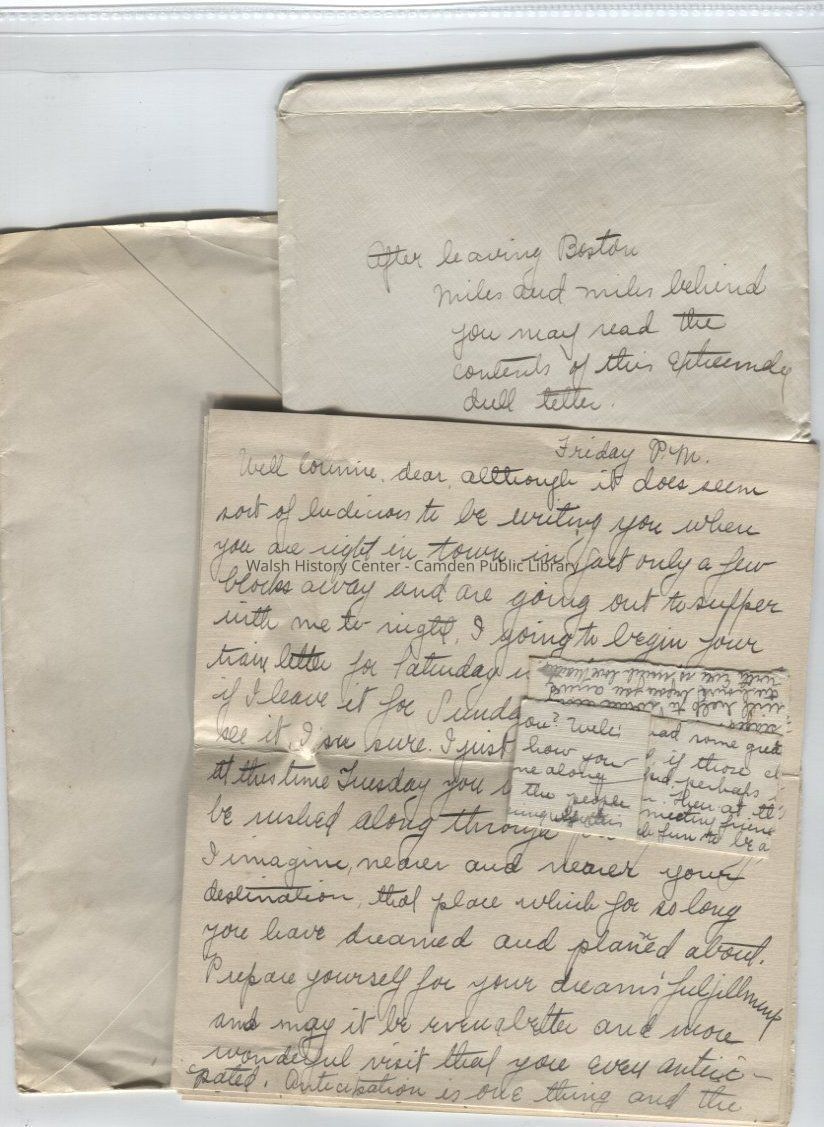 After leaving Boston
miles and miles behind
you may read the
contents of this extreemely
dull letter.
Friday P.M.
Well Corinne, dear, although it does seem
sort of ludicrous to be writing you when
you are right in town, in fact only a few
Walsh History Center - Camden Public Library
blocks away and are going out to supper
with me to night, I going to begin your
train letter for Saturday
if I leave it for Sunday
see it, I am sure. I just
at this time Tuesday you
be rushed along through
I imagine, nearer and nearer your
destination, that place which for so long
you have dreamed and planed about.
Prepare yourself for your dreams' fulfillment
and may it be even better and more
wonderful visit that you even antici-
pated. Anticipation is one thing and the
you? Well
how you
me along
the people
had some great
if those
and perhaps
then at th
meeting friend
fun to be a